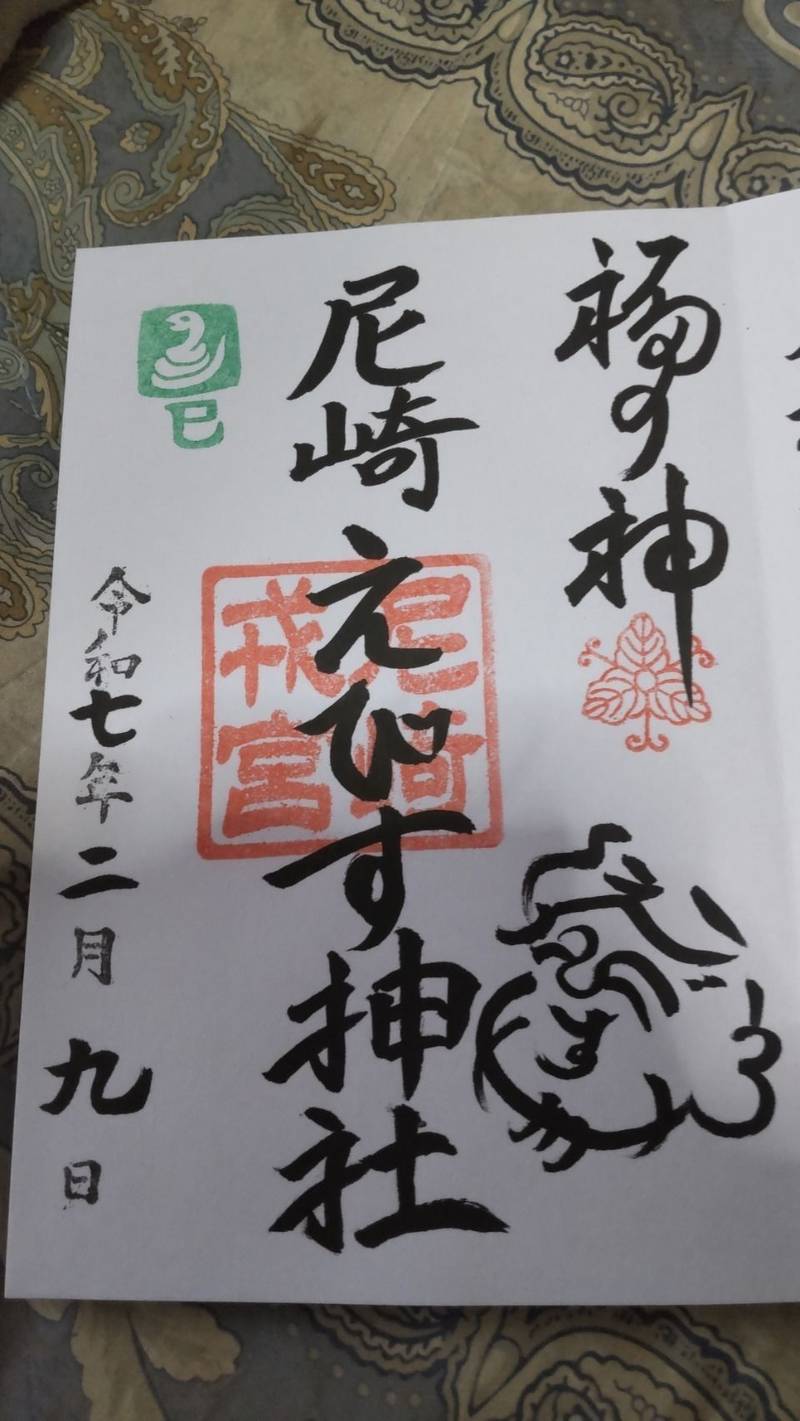 福の神
尼崎えびす神社
尼崎
戎宮
巳
令和七年二月九日